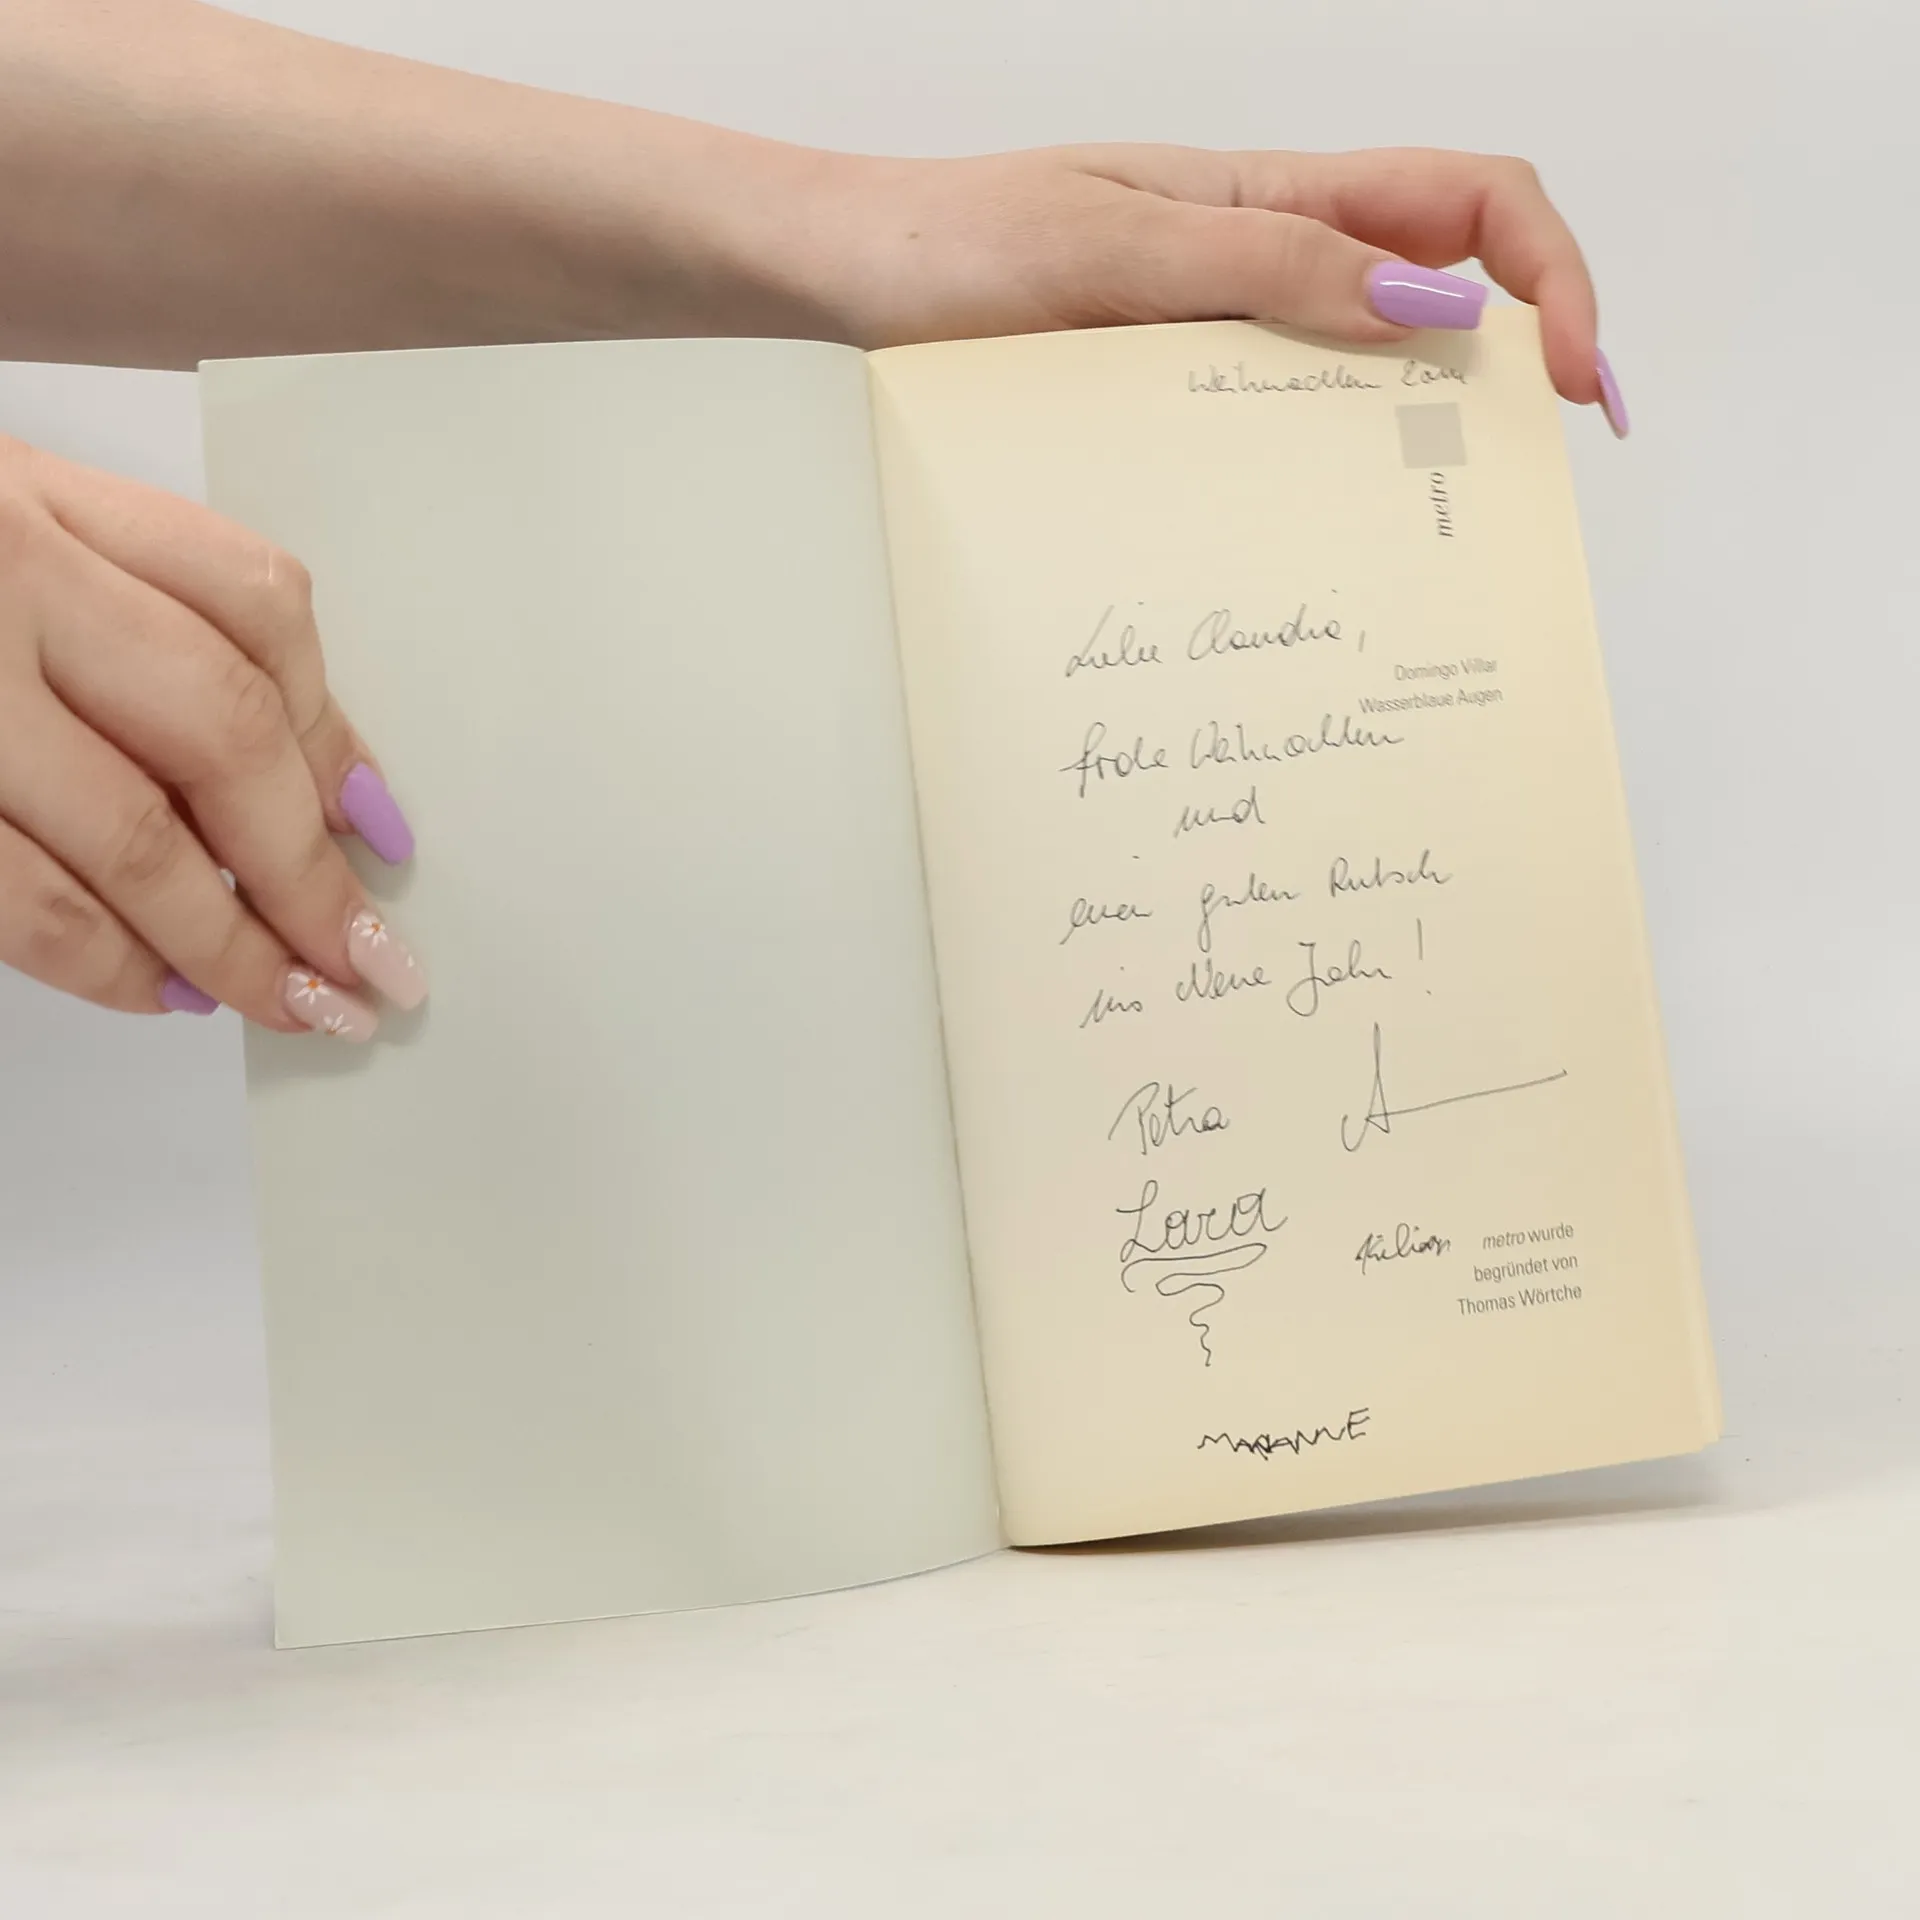 Weihnachten
metro
Liebe Claudia,
Domingo Villar
Wasserblaue Augen
frohe Weihnachten
und
einen guten Rutsch
ins Neue Jahr!
Petra
Lara
Kilian
metro wurde
begründet von
Thomas Wörtche
MARIANNE